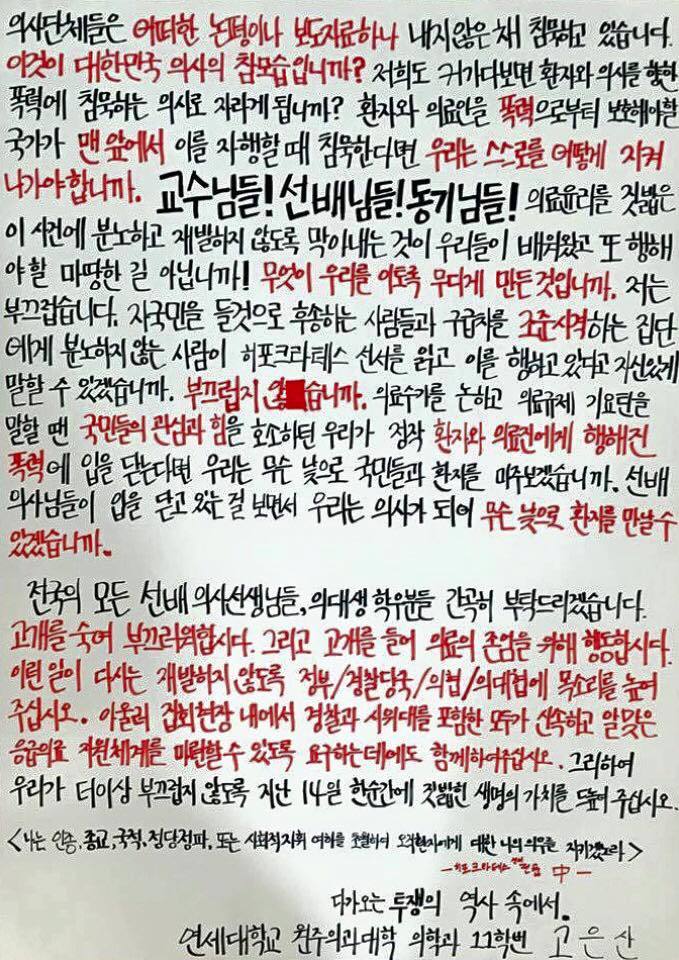 의사단체들은 어떠한 논평이나 보도자료하나 내지 않은채 침묵하고 있습니다.
이것이 대한민국 의사의 참모습입니까? 저희도 커가다보면 환자와 의사를 향한
폭력에 침묵하는 의사로 자라게 됩니까? 환자와 의료인을 폭력으로부터 보호해야할
국가가 맨 앞에서 이를 자행할 때 침묵한다면 우리는 스스로를 어떻게 지켜
나가야 합니까. 교수님들! 선배님들! 동기님들! 의료윤리를 짓밟은
이 사건에 분노하고 재발하지 않도록 막아내는 것이 우리들이 배워왔고 또 행해
야할 마땅한 길 아닙니까! 무엇이 우리를 이토록 무디게 만든것입니까. 저는
부끄럽습니다. 자국민을 들것으로 후송하는 사람들과 구급차를 조준사격하는 집단
에게 분노하지 않는 사람이 히포크라테스 선서를 읽고 이를 행하고 있다고 자신있게
말할 수 있겠습니까. 부끄럽지 않습니까. 의료수가를 논하고 의료규제 기요틴을
말할 땐 국민들의 관심과 힘을 호소하던 우리가 정작 환자와 의료진에게 행해진
폭력에 입을 닫는다면 우리는 무슨 낯으로 국민들과 환자를 마주보겠습니까. 선배
의사님들이 입을 닫고 있는 걸 보면서 우리는 의사가 되어 무슨 낯으로 환자를 만날 수
있겠습니까.
전국의 모든 선배 의사선생님들, 의대생 학우분들 간곡히 부탁드리겠습니다.
고개를 숙여 부끄러워합시다. 그리고 고개를 들어 의료의 존엄을 위해 행동합시다.
이런 일이 다시는 재발하지 않도록 정부/경찰당국/의협/의대협에 목소리를 높여
주십시오. 아울러 집회현장 내에서 경찰과 시위대를 포함한 모두가 신속하고 알맞은
응급의료 지원체계를 마련할 수 있도록 요구하는데에도 함께하여주십시오. 그리하여
우리가 더이상 부끄럽지 않도록 지난 14일 한순간에 짓밟힌 생명의 가치를 드높여 주십시오.
<나는 인종, 종교, 국적, 정당정파, 또는 사회적지위 여하를 초월하여 오직환자에게 대한 나의 의무를 지키겠노라>
－히포크라테스 선서 中－
다가오는 투쟁의 역사 속에서.
연세대학교 원주의과대학 의학과 11학번 고은산